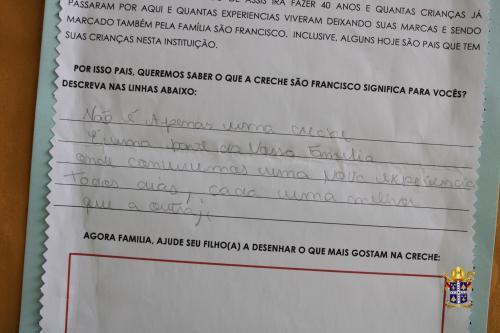 DE ASSIS IRÁ FAZER 40 ANOS E QUANTAS CRIANÇAS JÁ
PASSARAM POR AQUI E QUANTAS EXPERIENCIAS VIVERAM DEIXANDO SUAS MARCAS E SENDO
MARCADO TAMBÉM PELA FAMÍLIA SÃO FRANCISCO. INCLUSIVE, ALGUNS HOJE SÃO PAIS QUE TEM
SUAS CRIANÇAS NESTA INSTITUIÇÃO.
POR ISSO PAIS, QUEREMOS SABER O QUE A CRECHE SÃO FRANCISCO SIGNIFICA PARA VOCÊS?
DESCREVA NAS LINHAS ABAIXO:
Não é Apenas uma creche
É uma parte da Nossa Família
onde convivemos uma nova experiencia
Todos dias, cada uma melhor
que a outra
AGORA FAMILIA, AJUDE SEU FILHO(A) A DESENHAR O QUE MAIS GOSTAM NA CRECHE: